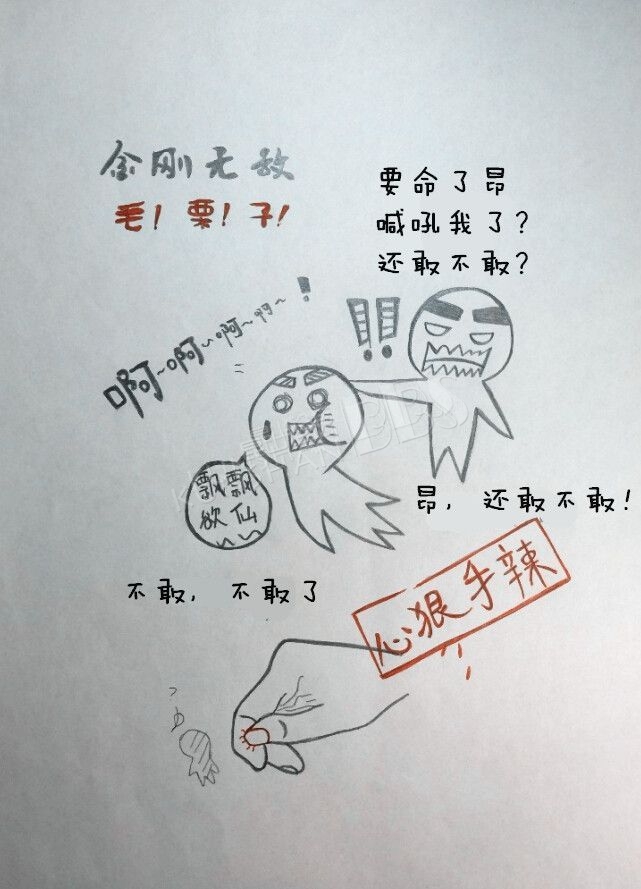 金刚无敌
毛！栗！子！
要命了昂
喊吼我了？
还敢不敢？
啊~啊~啊~啊~！
!!
飘飘
欲仙
昂，还敢不敢！
不敢，不敢了
心狠手辣